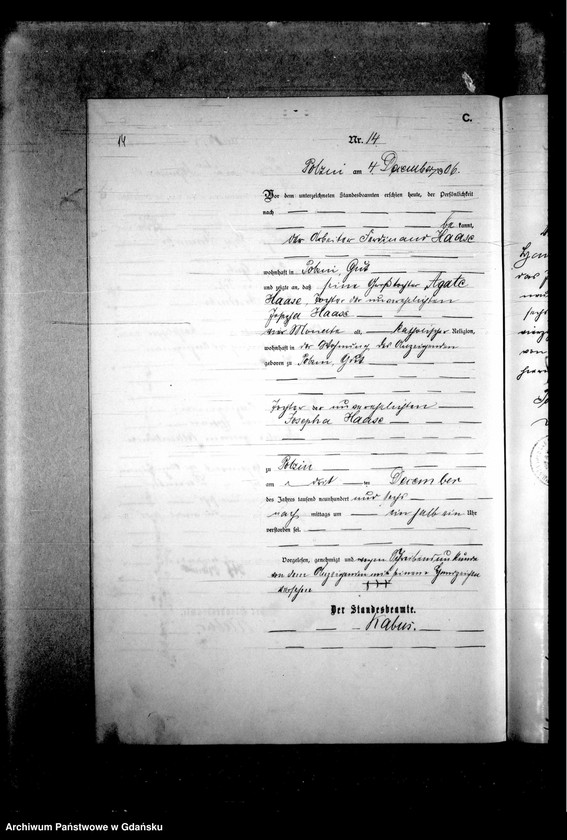 C.
14
Nr. 14
Polzin am 4 December 1906.
Vor dem unterzeichneten Standesbeamten erschien heute, der Persönlichkeit
nach
be kannt,
der Arbeiter Ferdinand Haase
wohnhaft in Polzin, Gut
und zeigte an, daß seine Großtochter Agate
Haase, Tochter der unverehelichten
Josepha Haase
vier Monate alt, katholischer Religion,
wohnhaft in der Wohnung des Anzeigenden
geboren zu Polzin, Gut
Tochter der unverehelichten
Josepha Haase
zu Polzin
am drei ten December
des Jahres tausend neunhundert und sechs
nach mittags um ein halb ein Uhr
verstorben sei.
Vorgelesen, genehmigt und wegen Schreibensunkunde
von dem Anzeigenden mit seinem Handzeichen
versehen +++
Der Standesbeamte.
Kabus.
Archiwum Państwowe w Gdańsku